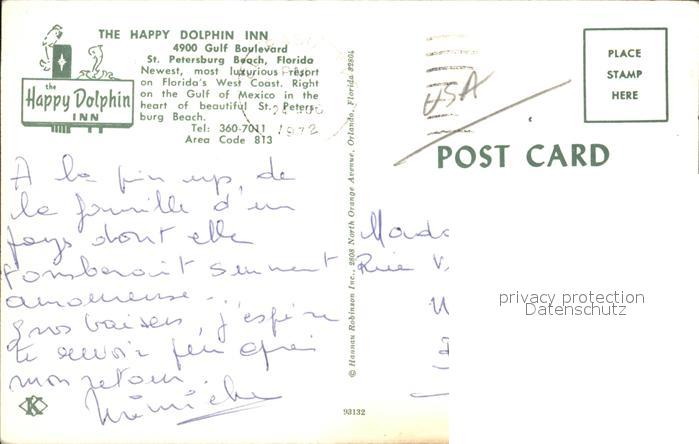 THE HAPPY DOLPHIN INN
4900 Gulf Boulevard
St. Petersburg Beach, Florida
Newest, most luxurious resort
on Florida's West Coast. Right
on the Gulf of Mexico in the
heart of beautiful St. Peters-
burg Beach.
Tel: 360-7011
Area Code 813
the
Happy Dolphin
INN
1972
USA
PLACE
STAMP
HERE
POST CARD
A la pin up, de
la famille d'un
pays dont elle
tomberait
amoureuse...
Gros baisers, j'espère
te revoir peu après
mon retour
Mimiche
K
© Hannau Robinson Inc., 2808 North Orange Avenue, Orlando, Florida 32804
93132
Mada
Rue V
privacy protection
Datenschutz